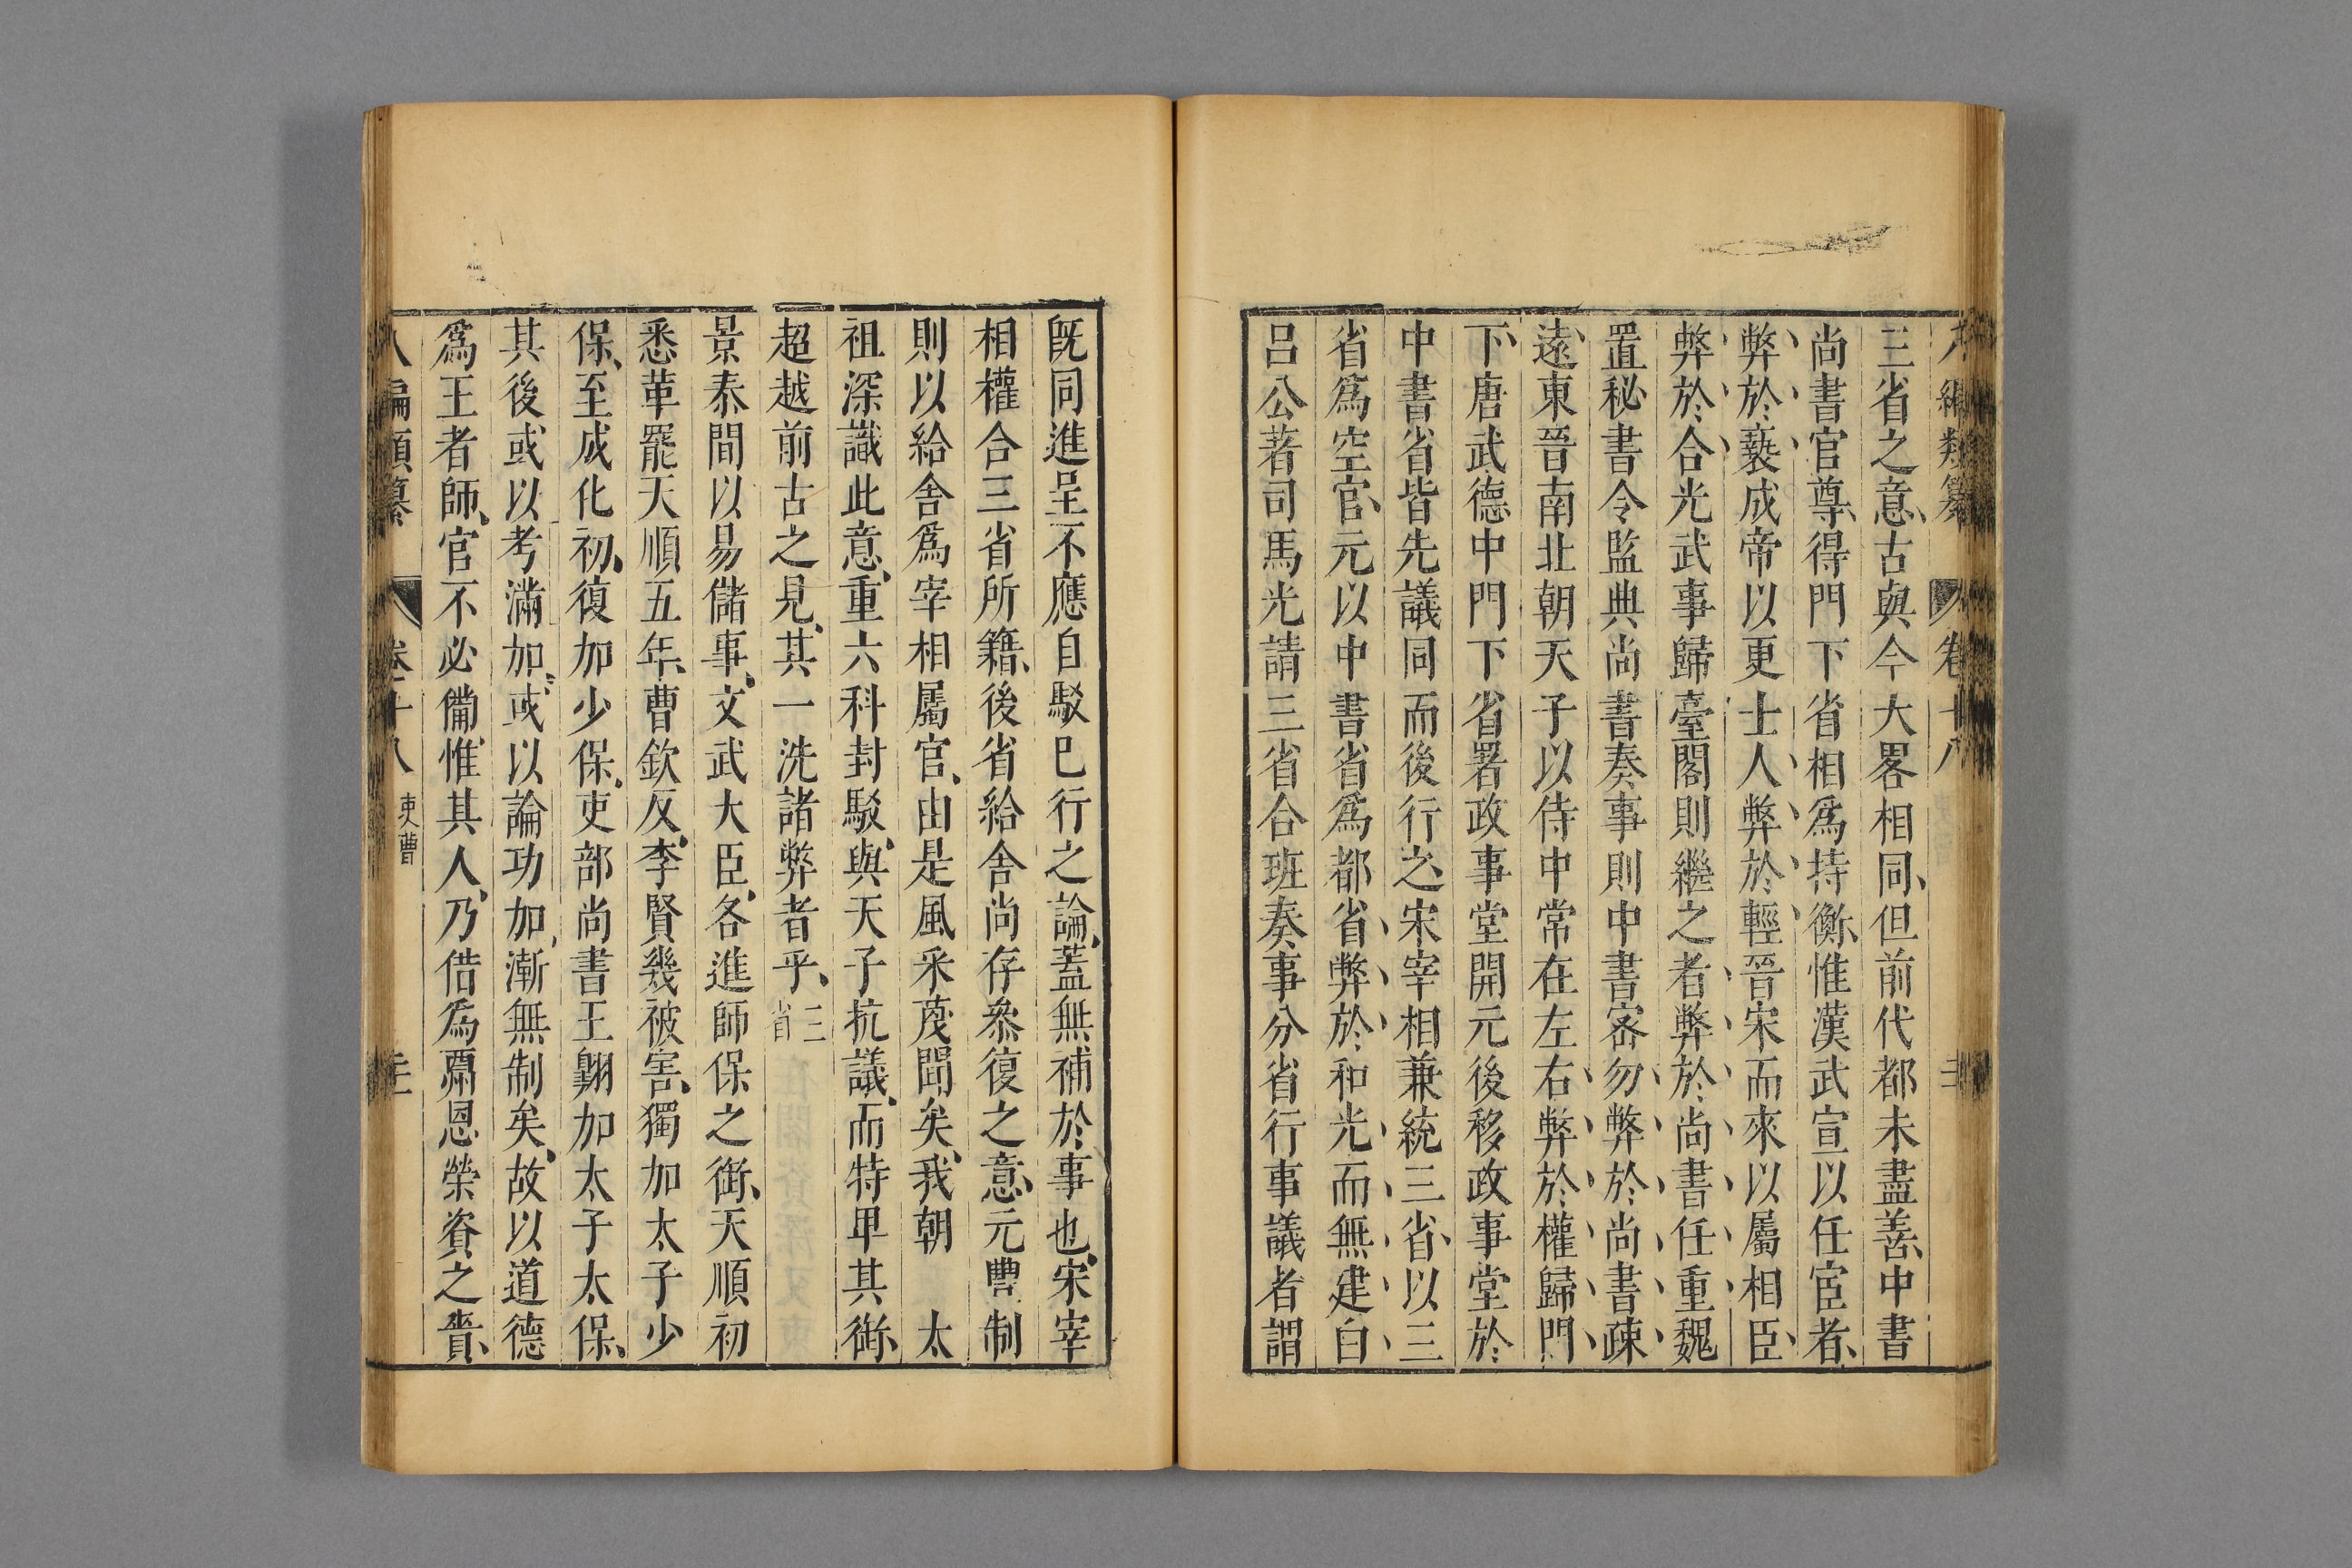 八編類纂 卷十八
三省之意古與今大畧相同但前代都未盡善中書
尚書官尊得門下省相爲持衡惟漢武宣以任宦者
弊於褻成帝以更士人弊於輕晉宋而來以屬相臣
弊於合光武事歸臺閣則繼之者弊於尚書任重魏
置秘書令監典尚書奏事則中書宻勿弊於尚書疎
遠東晉南北朝天子以侍中常在左右弊於權歸門
下唐武德中門下省署政事堂開元後移政事堂於
中書省皆先議同而後行之宋宰相兼統三省以三
省爲空官元以中書省爲都省弊於和光而無建白
呂公著司馬光請三省合班奏事分省行事議者謂
旣同進呈不應自駁巳行之論蓋無補於事也宋宰
相權合三省所籍後省給舍尚存叅復之意元豐制
則以給舍爲宰相屬官由是風采蔑聞矣我朝 太
祖深識此意重六科封駁與天子抗議而特卑其銜
超越前古之見其一洗諸弊者乎三省
景泰間以易儲事文武大臣各進師保之銜天順初
悉革罷天順五年曹欽反李賢幾被害獨加太子少
保至成化初復加少保吏部尚書王翺加太子太保
其後或以考滿加或以論功加漸無制矣故以道德
爲王者師官不必備惟其人乃借爲覃恩榮資之賚
八編類纂 卷十八 吏曹